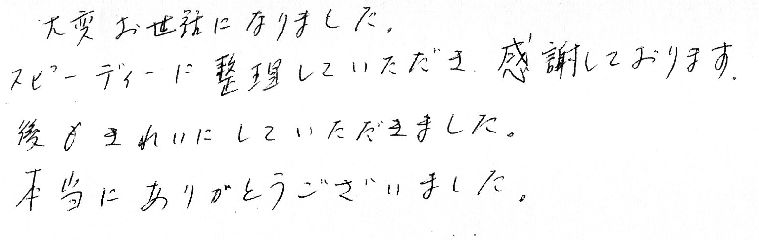 大変お世話になりました。
スピーディーに整理していただき、感謝しております。
後もきれいにしていただきました。
本当にありがとうございました。